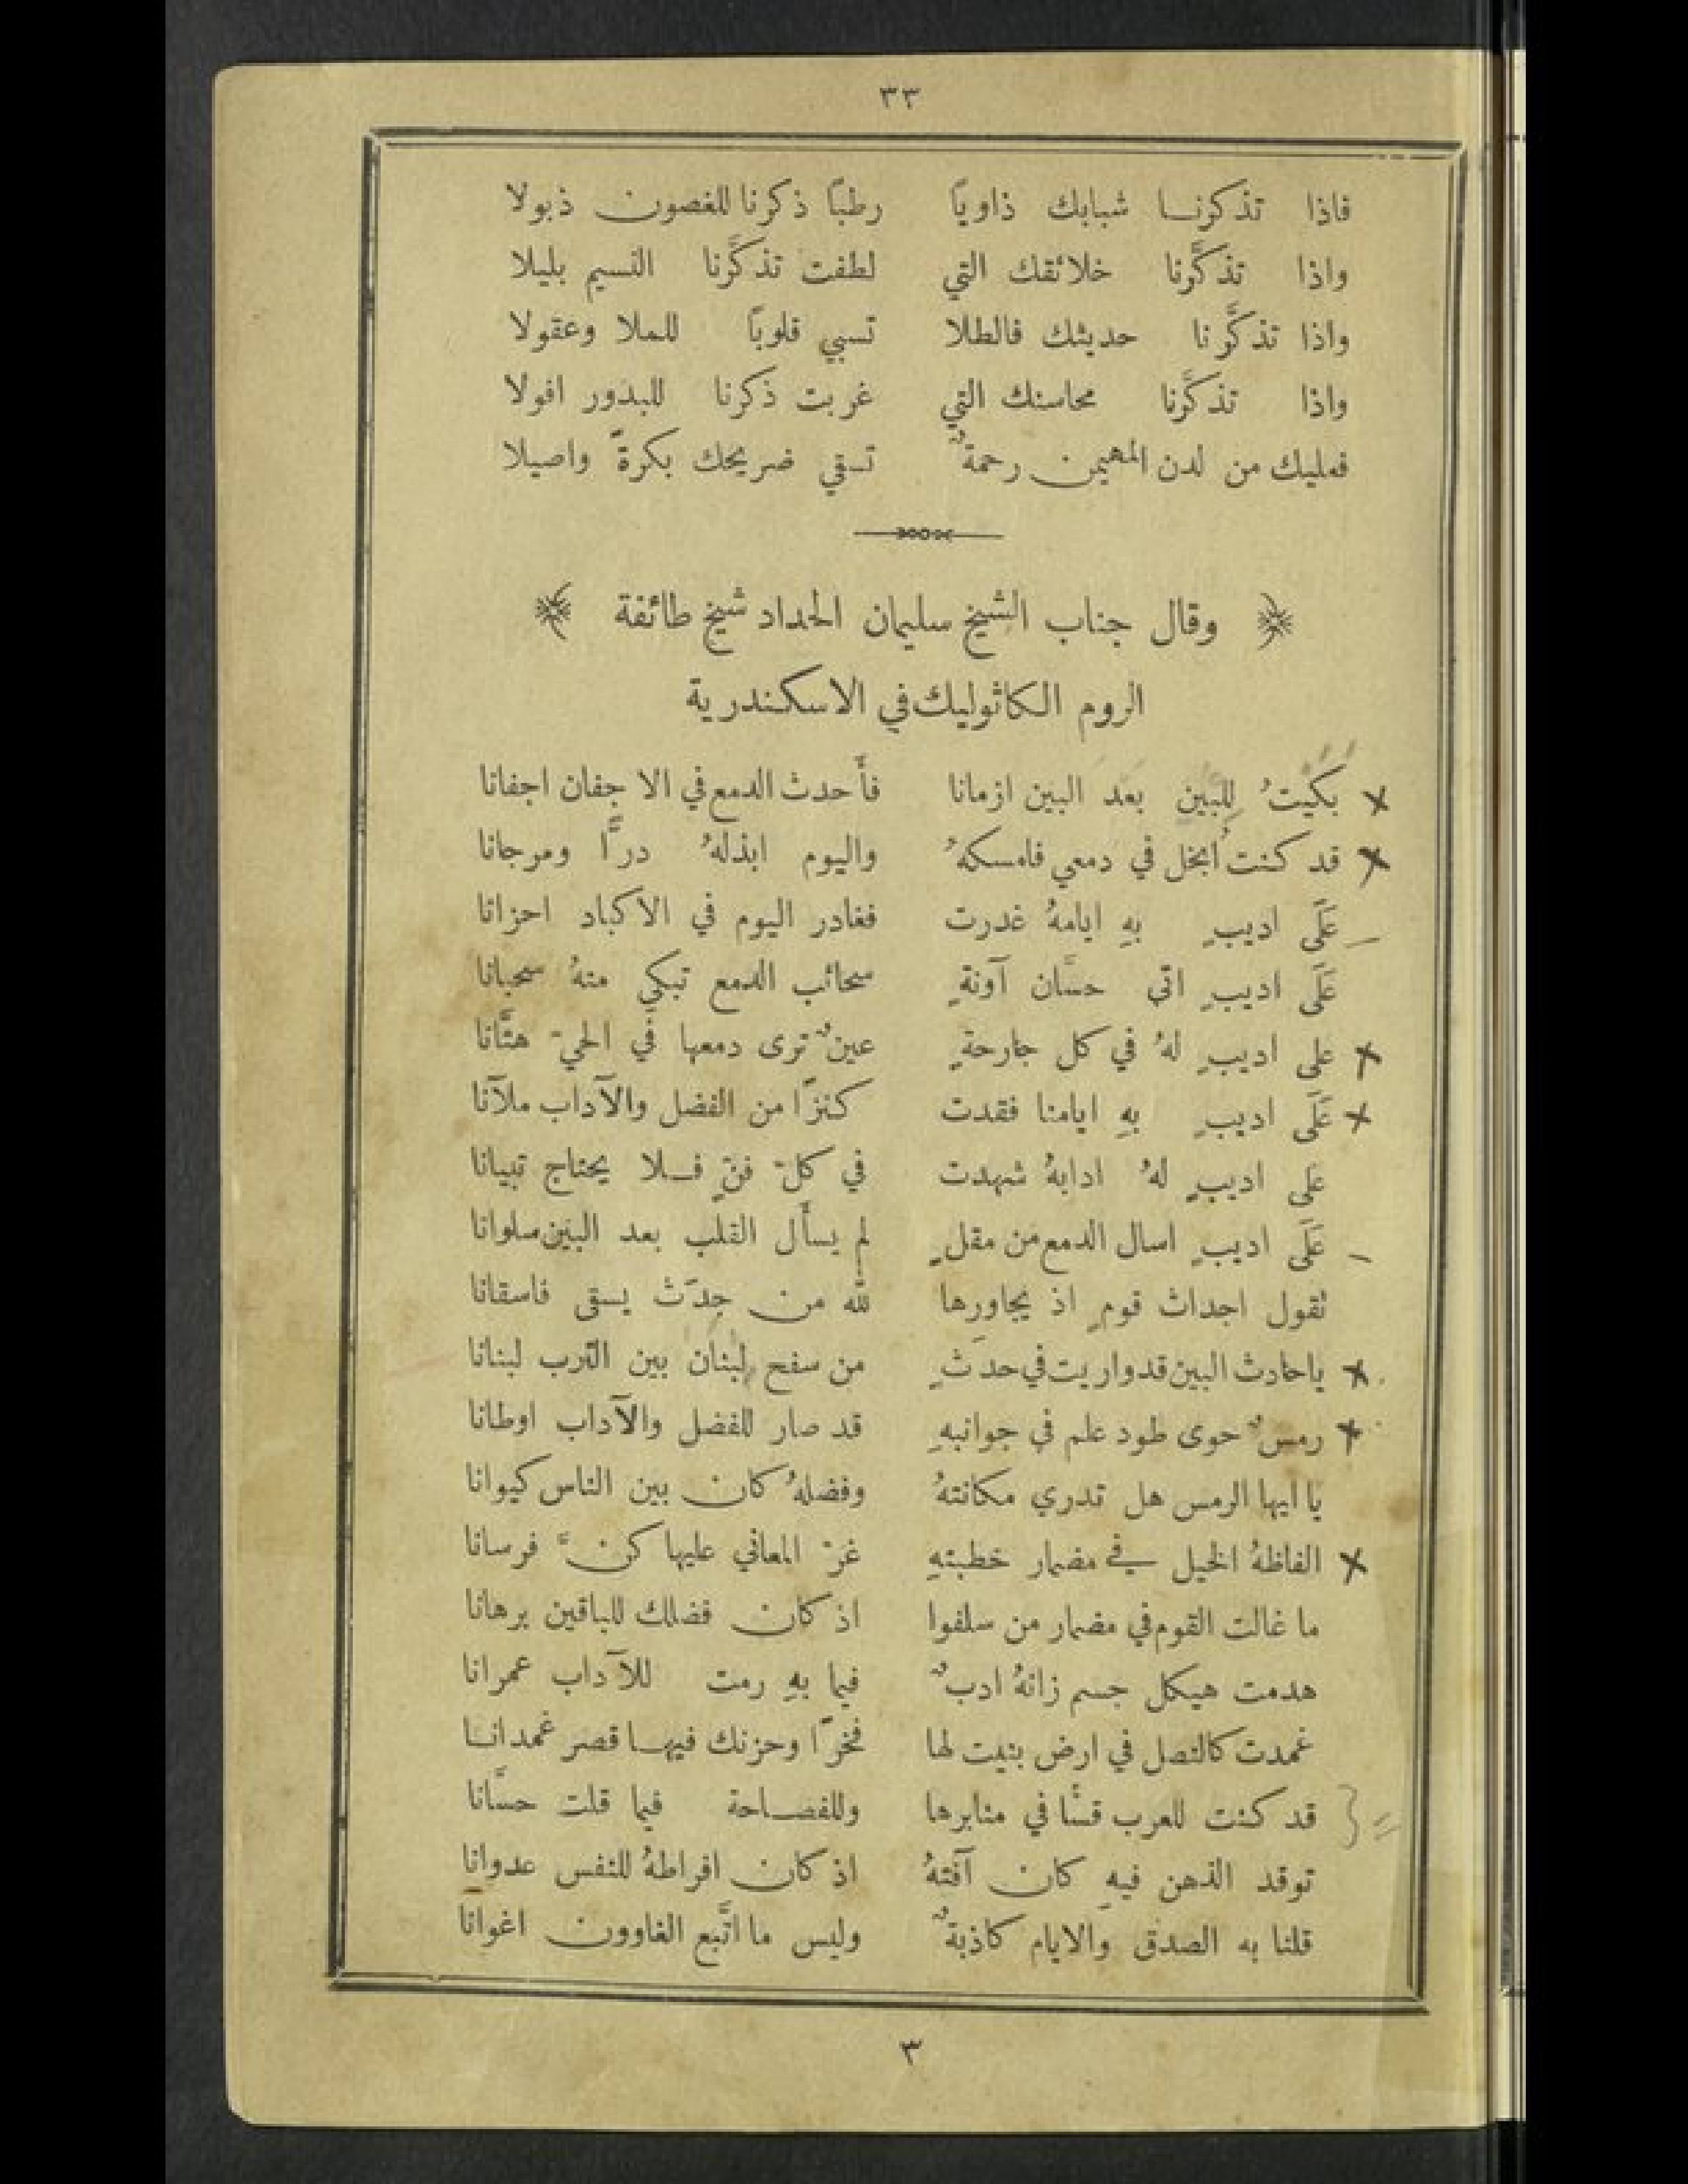 ٣٣
فاذا تذكرنا شبابك ذاوياً رطباً ذكرنا للغصون ذبولا
واذا تذكَّرنا خلائقك التي لطفت تذكَّرنا النسيم بليلا
واذا تذكَّرنا حديثك فالطلا تسبي قلوباً للملا وعقولا
واذا تذكَّرنا محاسنك التي غربت ذكرنا للبدور افولا
فعليك من لدن المهيمن رحمةٌ تسقي ضريحك بكرةً واصيلا
وقال جناب الشيخ سليمان الحداد شيخ طائفة
الروم الكاثوليك في الاسكندرية
بكيتُ لِلبَين بعد البين ازمانا فأَحدث الدمع في الاجفان اجفانا
قد كنت أبخل في دمعي فامسكهُ واليوم ابذلهُ درًّا ومرجانا
عَلَى اديبٍ بهِ ايامهُ غدرت فغادر اليوم في الاكباد احزانا
عَلَى اديبٍ اتى حسَّان آونةٍ سحائب الدمع تبكي منهُ سحبانا
على اديبٍ لهُ في كل جارحةٍ عينٌ ترى دمعها في الحيّ هتَّانا
عَلَى اديبٍ بهِ ايامنا فقدت كنزًا من الفضل والآداب ملآنا
على اديبٍ لهُ ادابهُ شهدت في كلّ فنٍّ فلا يحتاج تبيانا
عَلَى اديبٍ اسال الدمع من مقلٍ لم يسأَل القلب بعد البين سلوانا
نقول اجداث قومٍ اذ يجاورها لله من جدَث يسقى فاسقانا
ياحادث البين قد واريت في حدثٍ من سفح لبنان بين الترب لبنانا
رمسٌ حوى طود علم في جوانبهِ قد صار للفضل والآداب اوطانا
يا ايها الرمس هل تدري مكانتهُ وفضلهُ كان بين الناس كيوانا
الفاظهُ الخيل في مضمار خطبتهِ غرّ المعاني عليها كنَّ فرسانا
ما غالت القوم في مضمار من سلفوا اذ كان فضلك للباقين برهانا
هدمت هيكل جسم زانهُ ادبٌ فيما بهِ رمت للآداب عمرانا
غمدت كالنصل في ارض بنيت لها فخرًا وحزنك فيها قصر غمدانا
قد كنت للعرب قسًّا في منابرها وللفصاحة فيما قلت حسَّانا
توقد الذهن فيهِ كان آفتهُ اذ كان افراطهُ للنفس عدوانا
قلنا به الصدق والايام كاذبةٌ وليس ما اتَّبع الغاوون اغوانا
٣